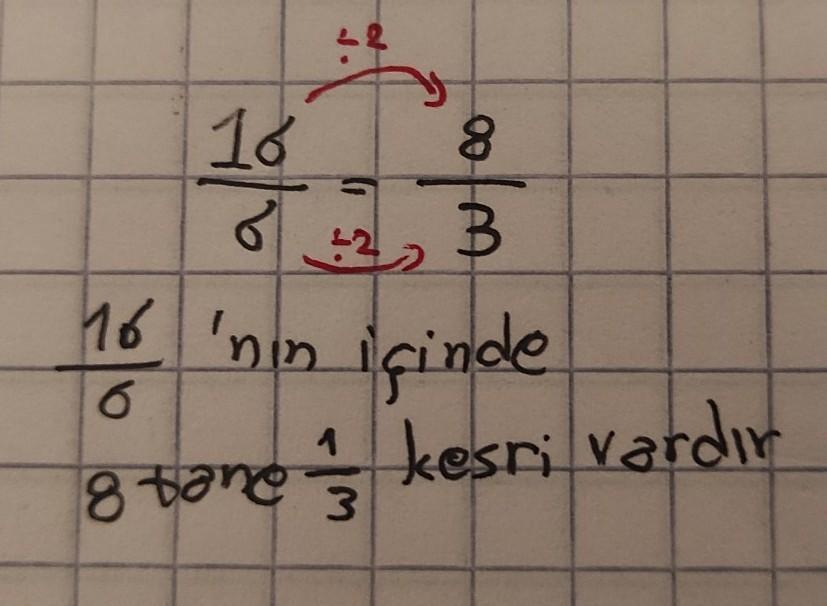 ÷2
16/6 = 8/3
÷2
16/6 'nın içinde
8 tane 1/3 kesri vardır